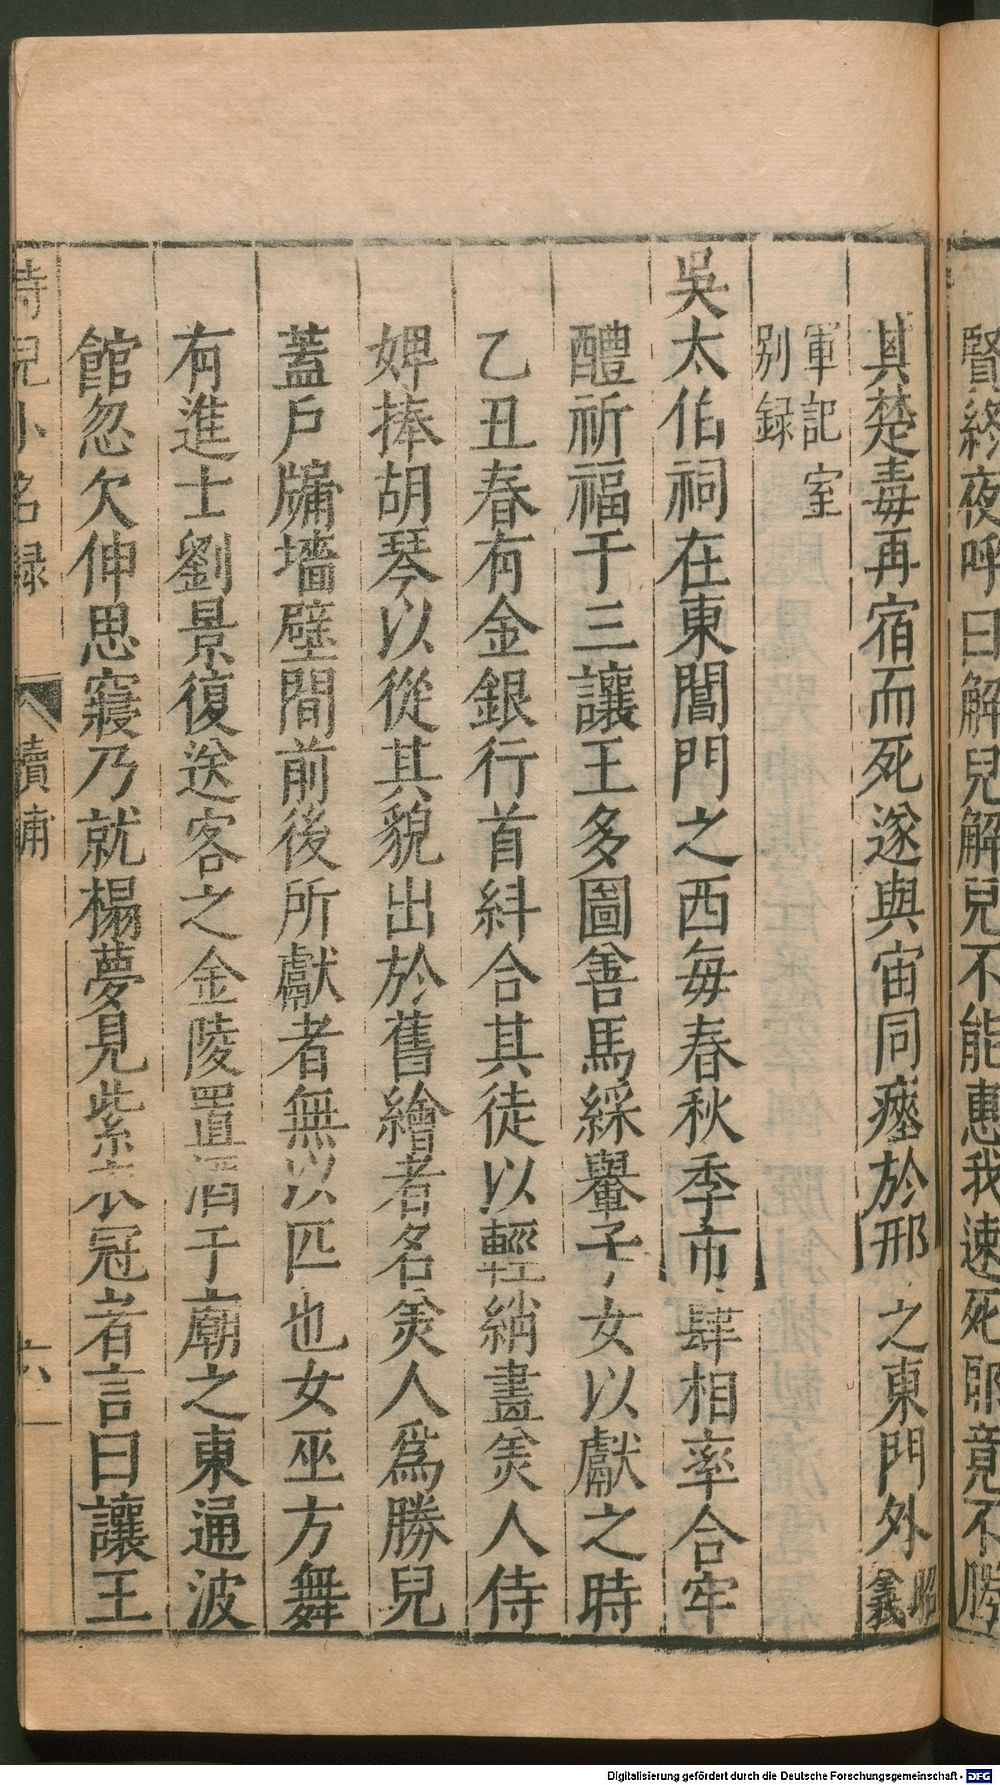 賢終夜呼曰解兒解兒不能惠我速死耶竟不勝
其楚毒再宿而死遂與宙同瘞於邢之東門外昭義
軍記室
別録
吳太伯祠在東閶門之西每春秋季市肆相率合牢
醴祈福于三讓王多圖善馬綵轝子女以獻之時
乙丑春有金銀行首糾合其徒以輕綃畫美人侍
婢捧胡琴以從其貌出於舊繪者名美人爲勝兒
蓋戶牖墻壁間前後所獻者無以匹也女巫方舞
有進士劉景復送客之金陵置酒于廟之東通波
館忽欠伸思寢乃就榻夢見紫衣冠者言曰讓王
侍兒小名録 續補 六
Digitalisierung gefördert durch die Deutsche Forschungsgemeinschaft - DFG